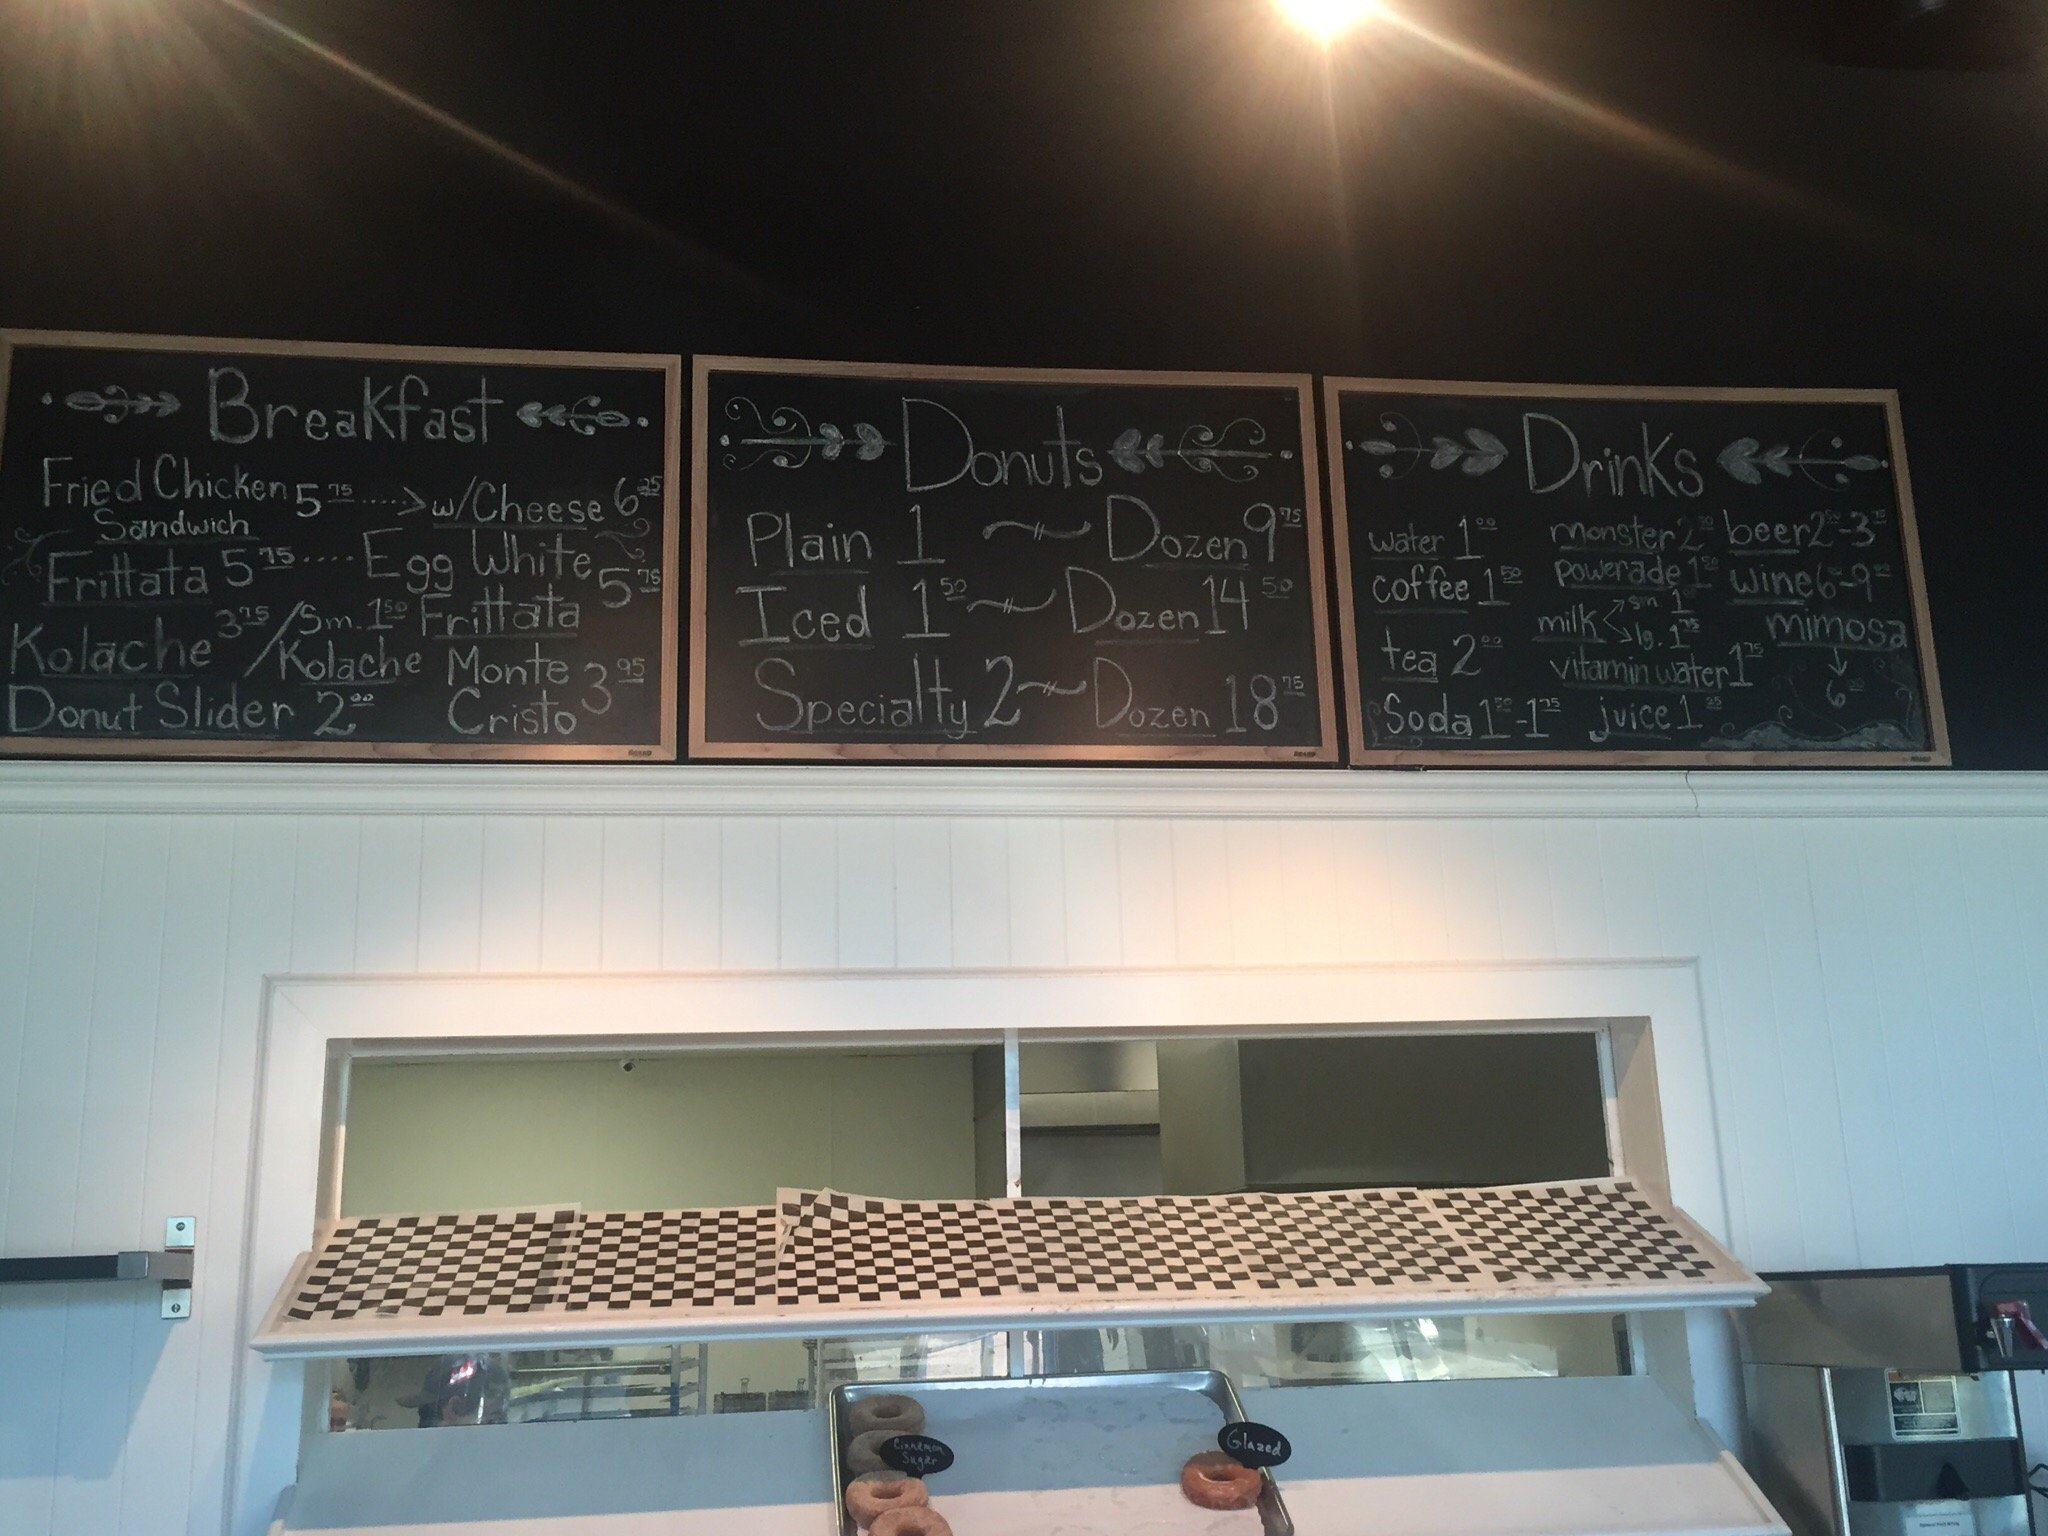 Breakfast
Fried Chicken 5 75 .....> w/Cheese 6 25
Sandwich
Frittata 5 75 .... Egg White 5 75
Frittata
Kolache 3 75 / Sm. 1 50
Kolache
Monte 3 95
Cristo
Donut Slider 2 00
Donuts
Plain 1 ~ Dozen 9 75
Iced 1 50 ~ Dozen 14 50
Specialty 2 ~ Dozen 18 75
Drinks
water 1 00
coffee 1 50
tea 2 00
Soda 1 50 - 1 75
monster 2
powerade 1
milk sm. 1
lg. 1 75
vitamin water 1 75
juice 1 25
beer 2 - 3
wine 6 - 9
mimosa
6 00
Cinnamon
Sugar
Glazed